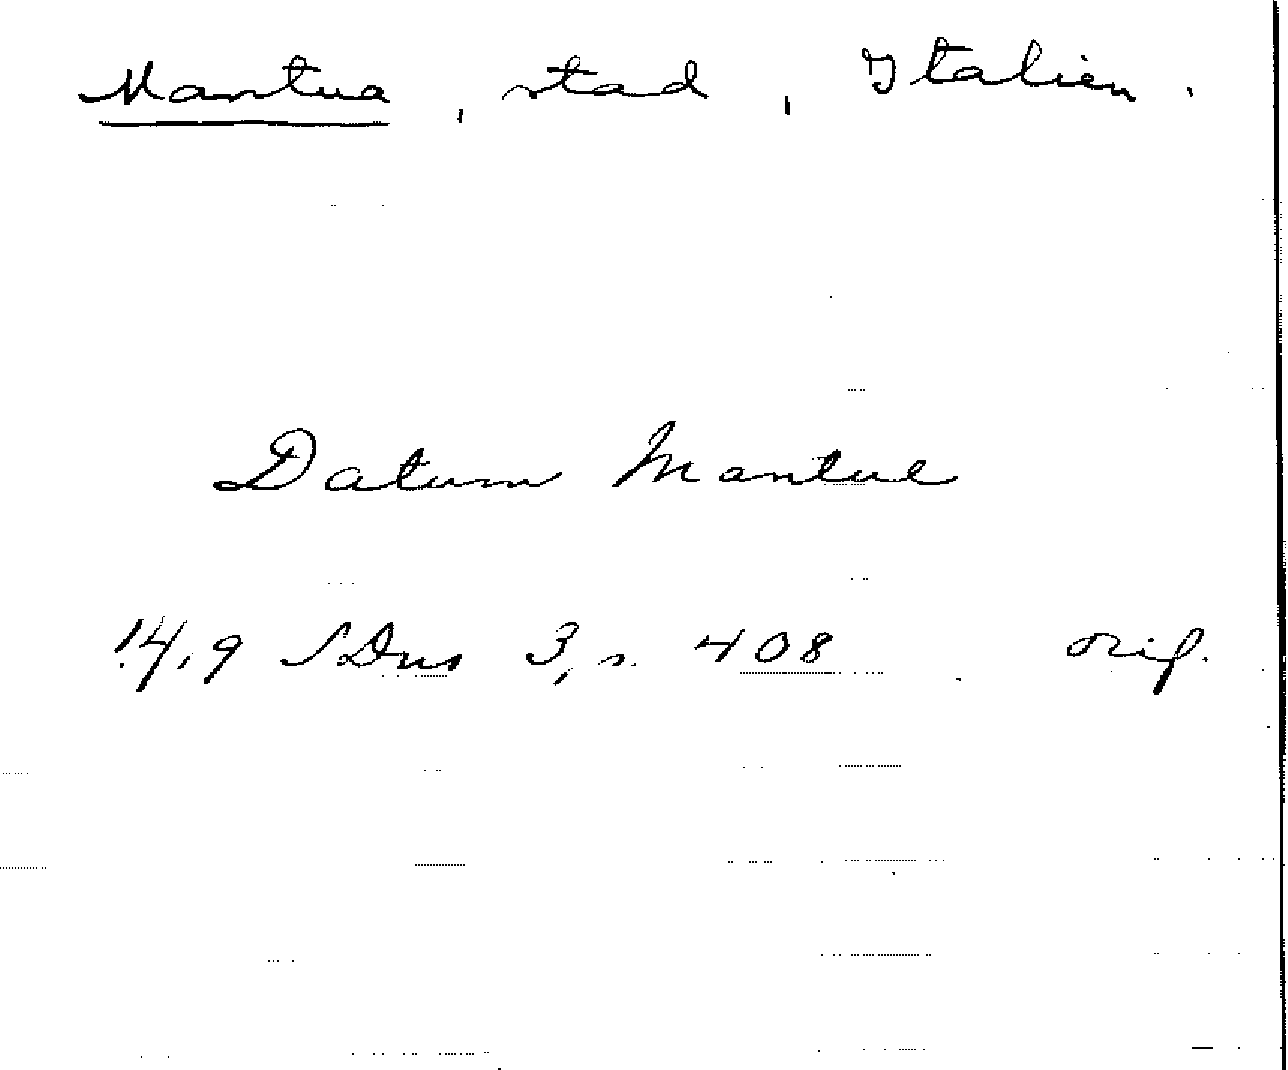 Mantua, stad, Italien.
Datum Mantue
14,9 SDns 3, s. 408 orig.